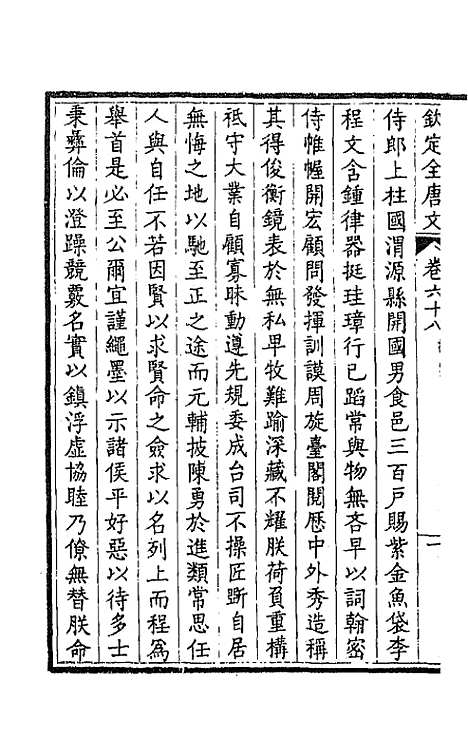 欽定全唐文 卷六十八 一
侍郎上柱國渭源縣開國男食邑三百戸賜紫金魚袋李
程文含鍾律器挺珪璋行已蹈常與物無吝早以詞翰密
侍帷幄開宏顧問發揮訓謨周旋臺閣閲歴中外秀造稱
其得俊衡鏡表於無私早牧難踰深藏不耀朕荷負重構
祗守大業自顧寡昧動遵先規委成台司不操匠斲自居
無悔之地以馳至正之途而元輔披陳勇於進類常思任
人與自任不若因賢以求賢命之僉求以名列上而程為
舉首是必至公爾宜謹繩墨以示諸侯平好惡以待多士
秉彛倫以澄躁競覈名實以鎮浮虚協睦乃僚無替朕命